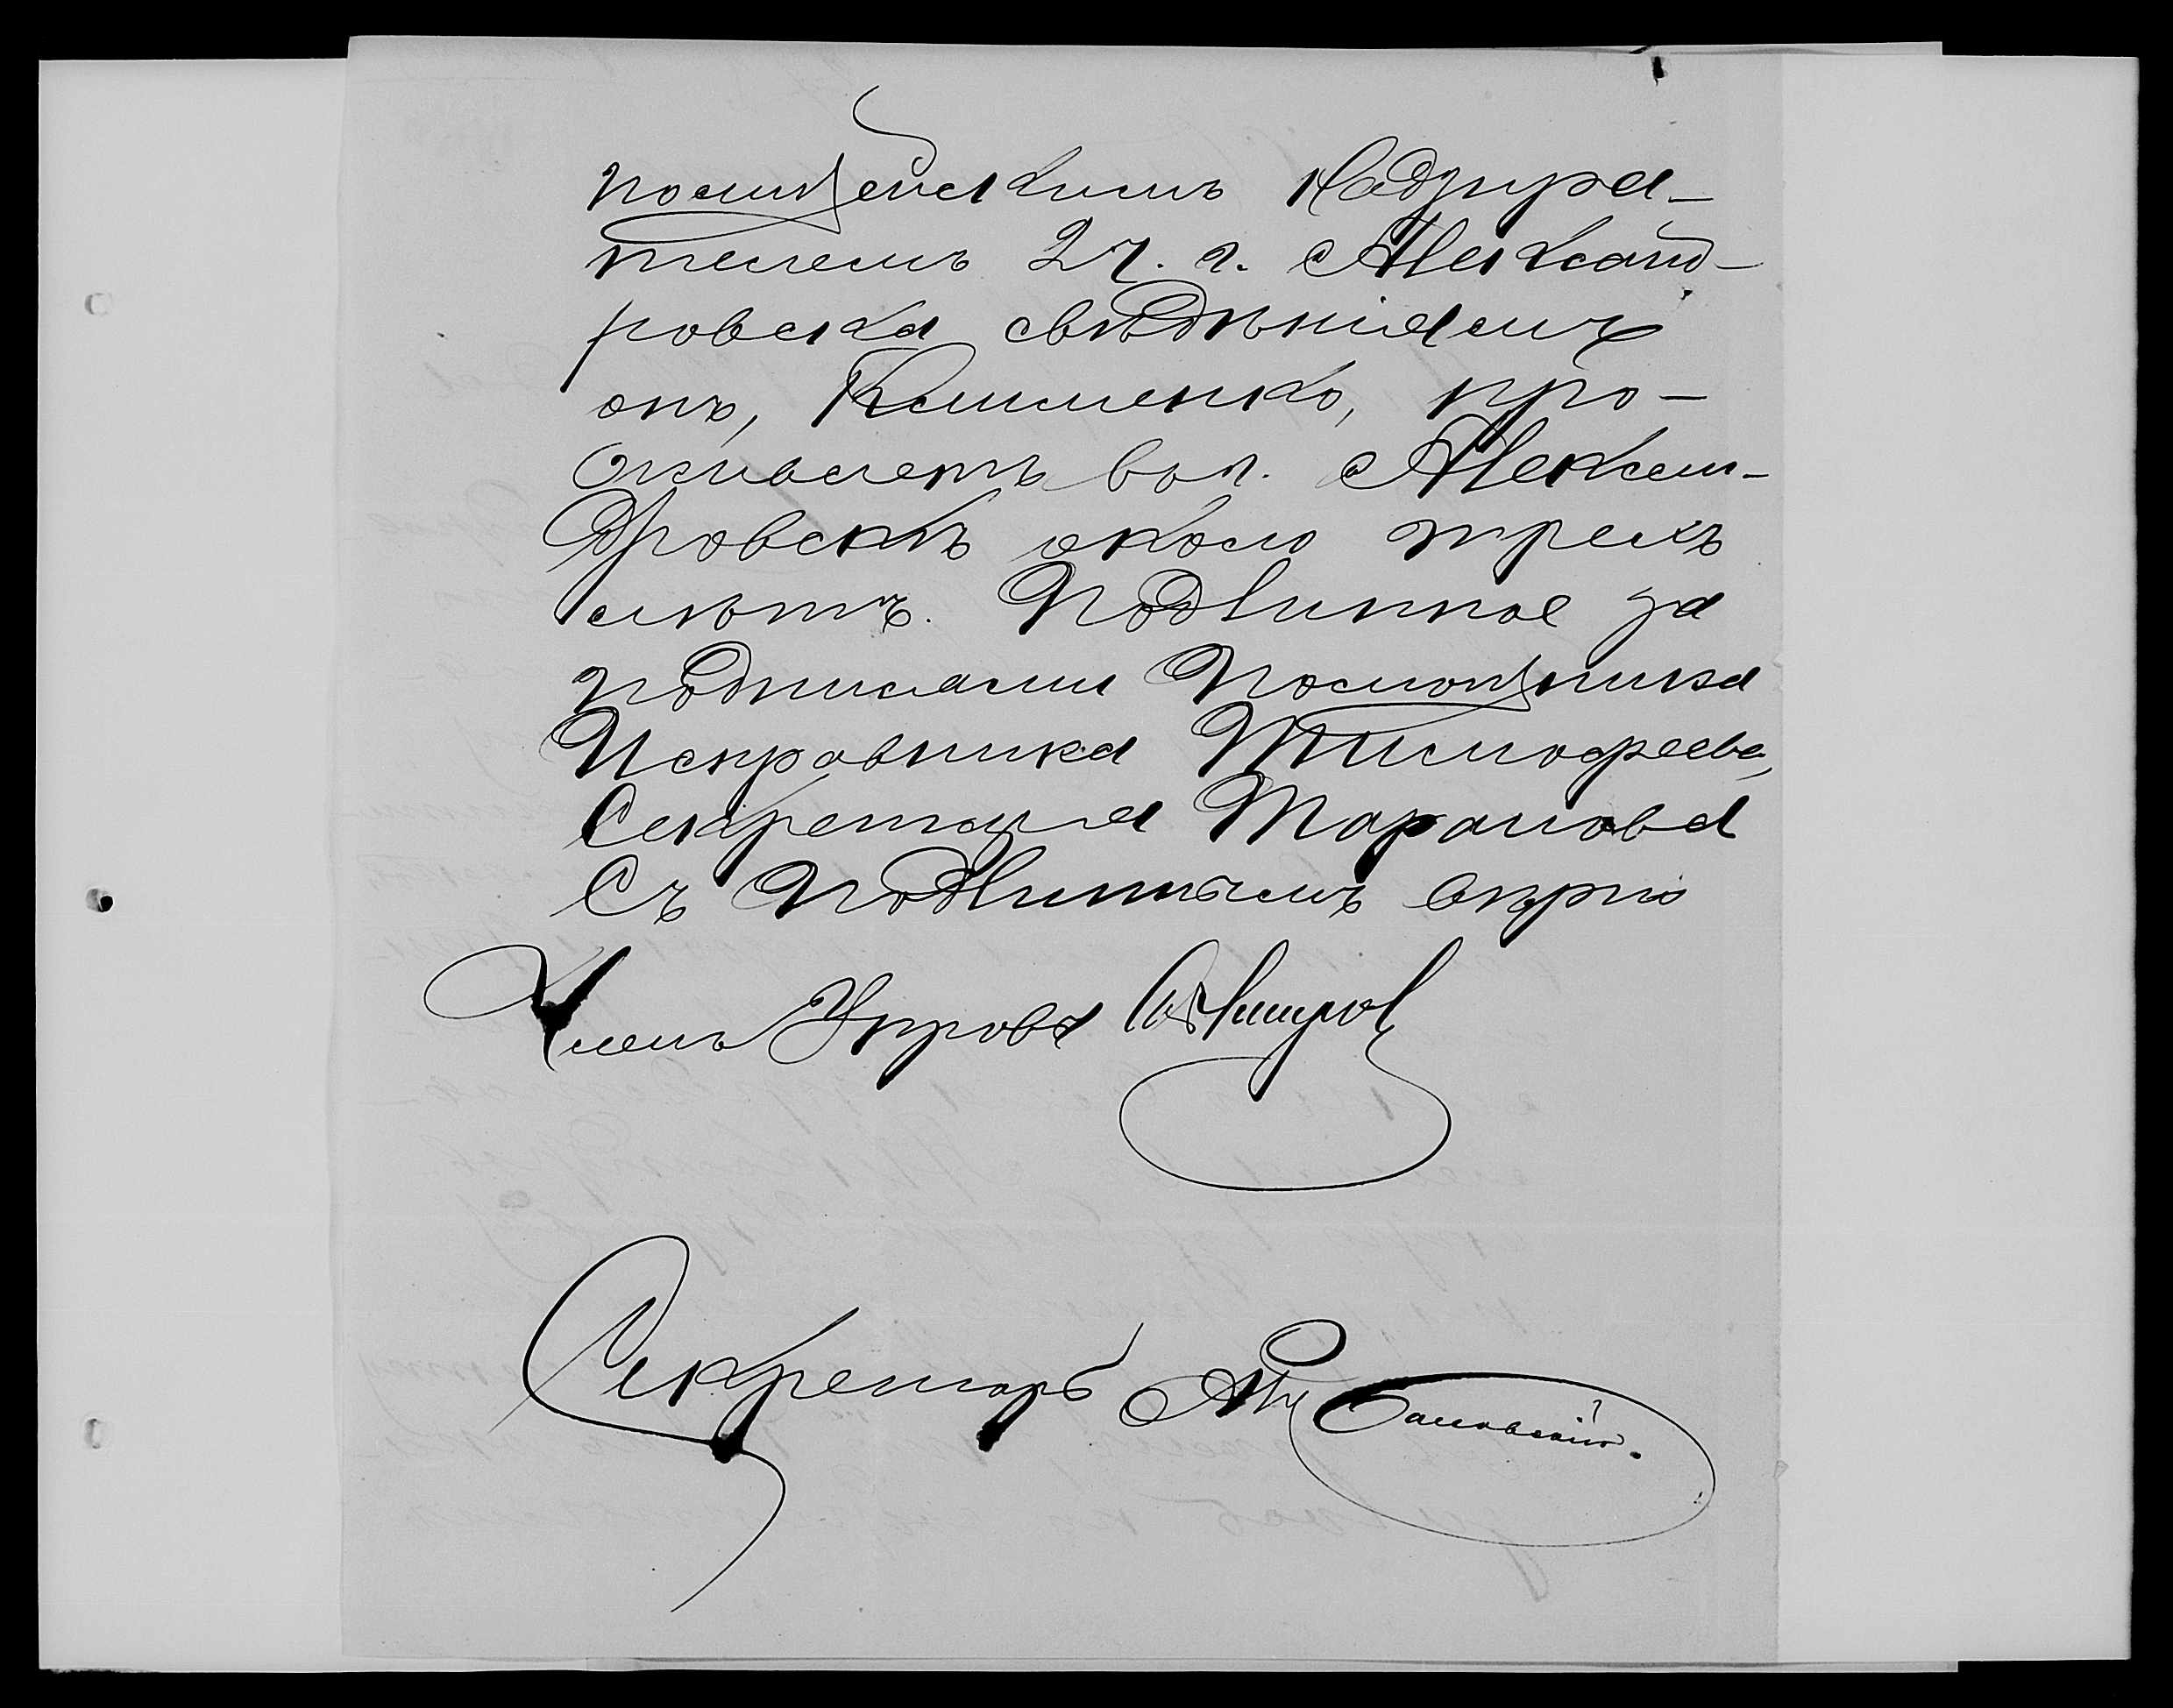 полицейскимъ Надзира-
телемъ 2 ч. г. Александ-
ровска свѣдѣніямъ
онъ, Клименко, про-
живаетъ въ г. Алексан-
дровскѣ около трехъ
лѣтъ. Подлинное за
подписами Помощника
Исправника Тимофеева,
Секретаря Таранова
Съ подлиннымъ вѣрно
Членъ Управы
Секретарь